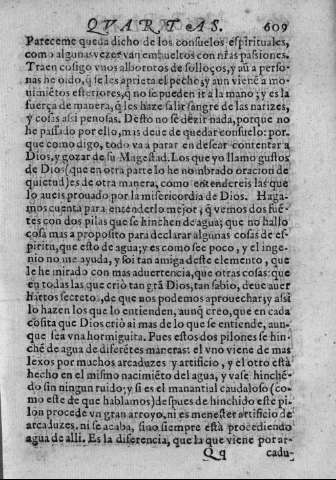 QVARTAS. 609
Pareceme queda dicho de los consuelos espirituales,
como algunas vezes van embueltos con nr̃as passiones.
Traen cõsigo vnos alborotos de solloços, y aũ a perso-
nas he oido, q̃ se les aprieta el pecho, y aun vienẽ a mo-
uimiẽtos esteriores, q̃ no se pueden ir a la mano; y es la
fuerça de manera, q̃ les haze salir sangre de las narizes,
y cosas assi penosas. Desto no sè dezir nada, porque no
he passado por ello, mas deue de quedar consuelo: por-
que como digo, todo va a parar en desear contentar a
Dios, y gozar de su Magestad. Los que yo llamo gustos
de Dios (que en otra parte lo he nombrado oracion de
quietud) es de otra manera, como entendereis las que
lo aueis prouado por la misericordia de Dios. Haga-
mos cuenta para entenderlo mejor, q̃ vemos dos fuẽ-
tes con dos pilas que se hinchen de agua; que no hallo
cosa mas a proposito para declarar algunas cosas de es-
piritu, que esto de agua; y es como sè poco, y el inge-
nio no me ayuda, y soi tan amiga deste elemento, que
le he mirado con mas aduertencia, que otras cosas: que
en todas las que criò tan grã Dios, tan sabio, deue auer
hartos secretos, de que nos podemos aprouechar; y assi
lo hazen los que lo entienden, aunq̃ creo, que en cada
cosita que Dios criò ai mas de lo que se entiende, aun-
que sea vna hormiguita. Pues estos dos pilones se hin-
chẽ de agua de diferẽtes maneras: el vno viene de mas
lexos por muchos arcaduzes y artificio, y el otro està
hecho en el mismo nacimiẽto del agua, y vase hinchẽ-
do sin ningun ruido; y si es el manantial caudaloso (co-
mo este de que hablamos) despues de hinchido este pi-
lon procede vn gran arroyo, ni es menester artificio de
arcaduzes, ni se acaba, sino siempre està procediendo
agua de alli. Es la diferencia, que la que viene por ar-
Qq cadu-